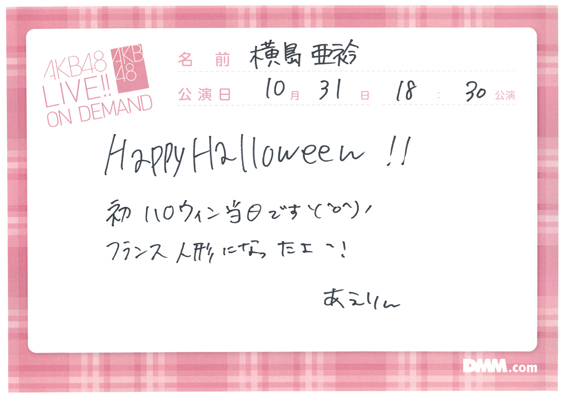 AKB48
LIVE!!
ON DEMAND
AKB
48
名前 横島 亜衿
公演日 10月 31日 18 : 30 公演
HappyHalloween !!
初ハロウィン当日です\(^o^)/
フランス人形になったよ〜!
あえりん
DMM.com